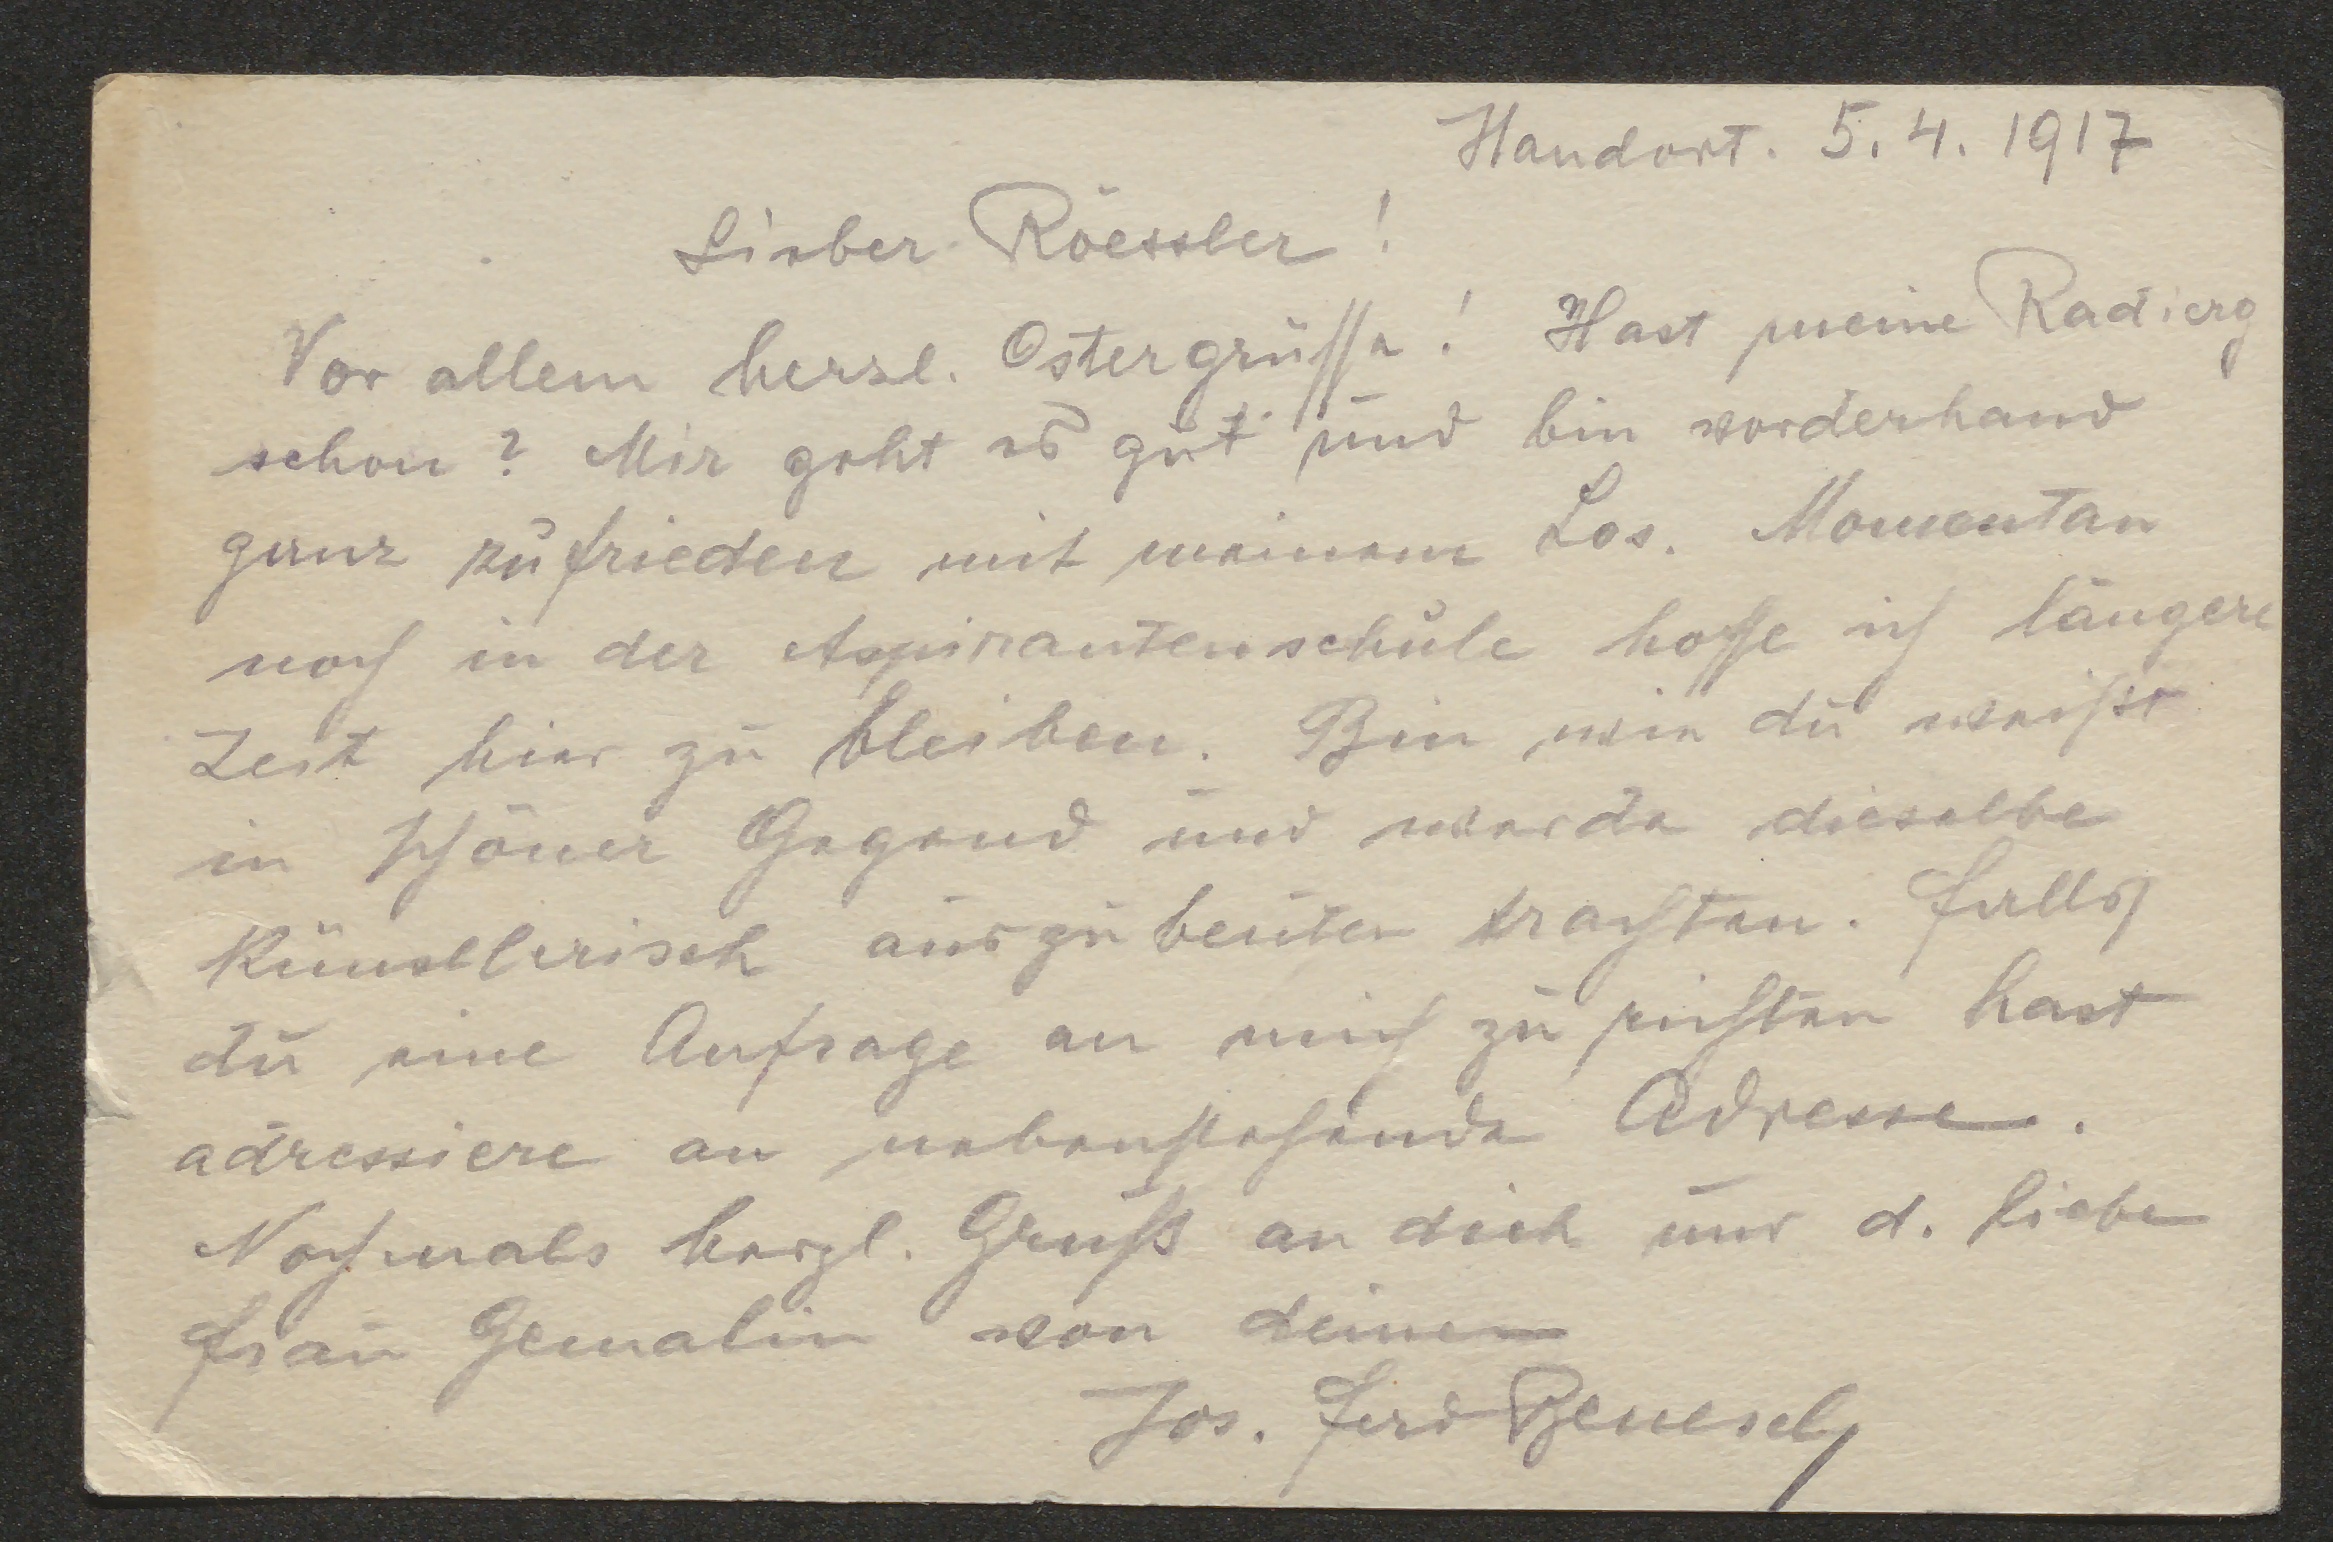 Standort. 5.4.1917
Lieber Röessler!
Vor allem herzl. Ostergrüsse! Hast meine Radierg
schon? Mir geht es gut und bin vorderhand
ganz zufrieden mit meinem Los. Momentan
noch in der Aspirantenschule hoffe ich längere
Zeit hier zu bleiben. Bin wie du weißt
in schöner Gegend und werde dieselbe
künstlerisch auszubeuten trachten. Falls
du eine Anfrage an mich zu richten hast
adressiere an nebenstehende Adresse.
Nochmals herzl. Gruß an dich und d. liebe
Frau Gemalin von deinem
Jos. Ferd Benesch